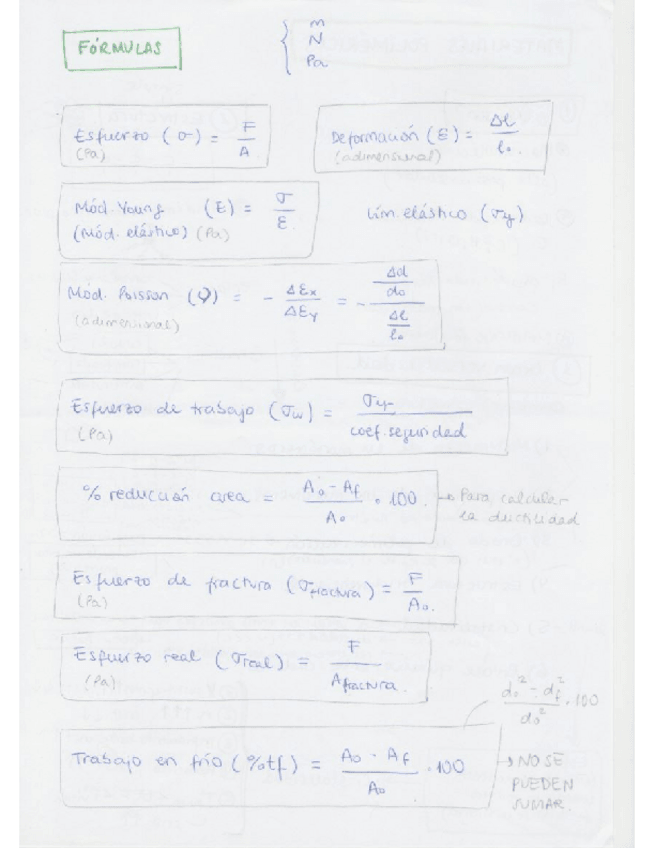 FÓRMULAS
{ m
N
Pa
Esfuerzo (σ) = F / A
(Pa)
Deformación (ε) = Δl / l₀
(adimensional)
Mód. Young (E) = σ / ε
(Mód. elástico) (Pa)
Lím. elástico (σy)
Mód. Poisson (ν) = - Δεx / Δεy = - (Δd / d₀) / (Δl / l₀)
(adimensional)
Esfuerzo de trabajo (σw) = σy / coef. seguridad
(Pa)
% reducción area = A₀ - Af / A₀ · 100. → Para calcular
la ductilidad
Esfuerzo de fractura (σfractura) = F / A₀.
(Pa)
Esfuerzo real (σreal) = F / Afractura.
(Pa)
d₀² - df² / d₀² · 100
Trabajo en frío (%tf) = A₀ - Af / A₀ · 100
→ NO SE
PUEDEN
SUMAR.